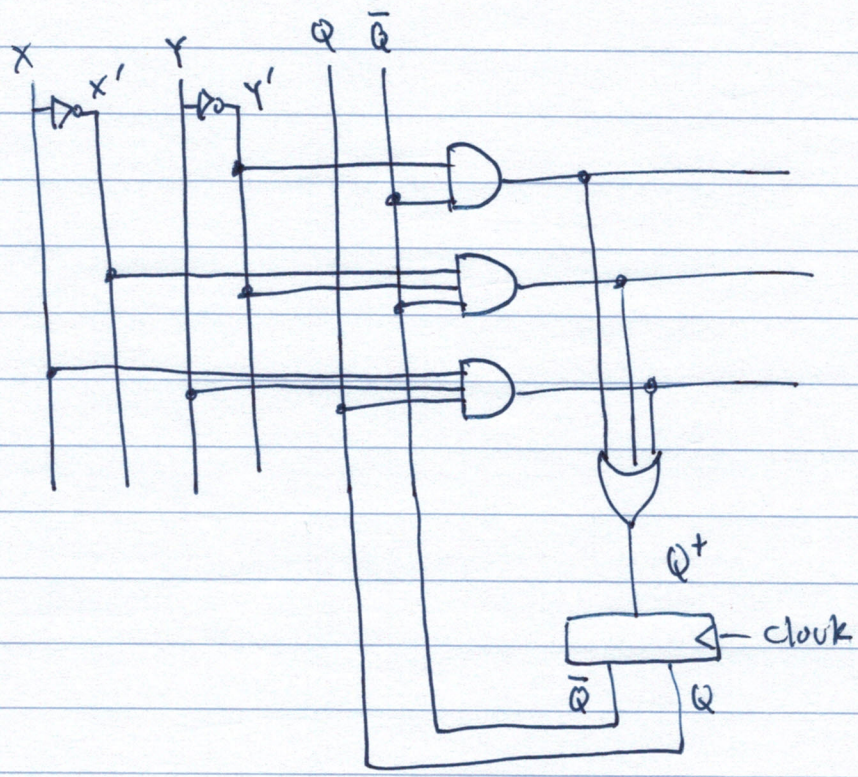 X X' Y Y' Q Q̅
Q⁺
clouk
Q̅ Q